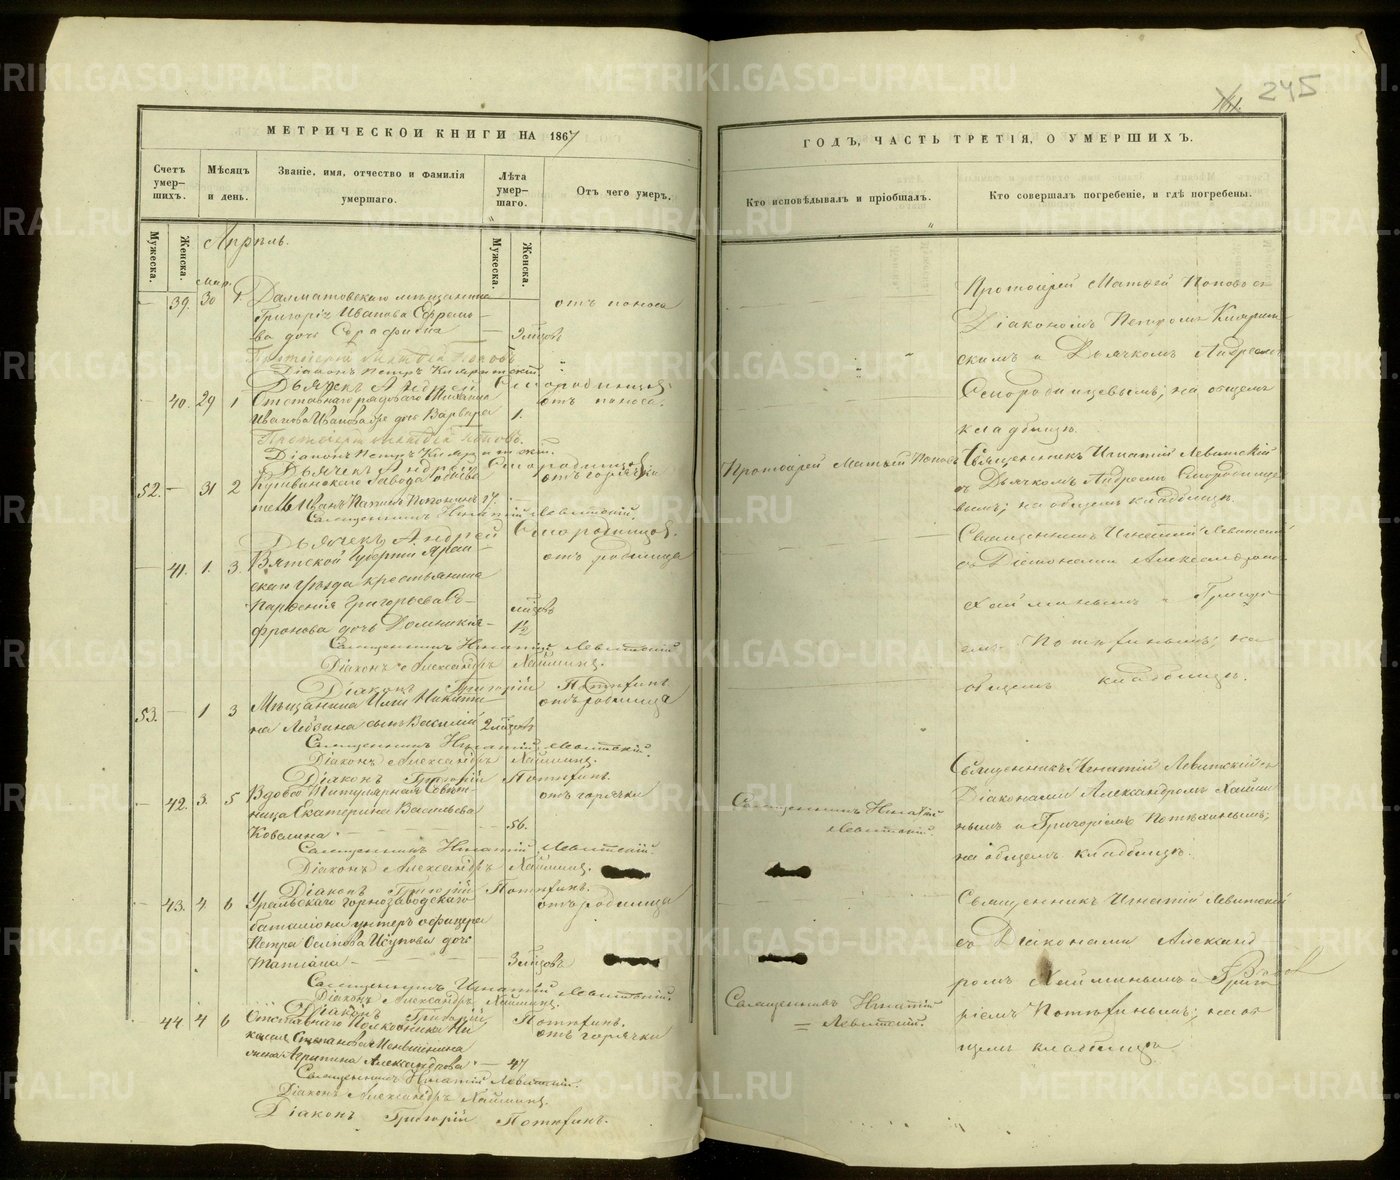 245
МЕТРИЧЕСКОЙ КНИГИ НА 1867
Счетъ умер-шихъ.
Мѣсяцъ и день.
Званіе, имя, отчество и фамилія умершаго.
Лѣта умер-шаго.
Отъ чего умеръ.
Мужеска.
Женска.
Мужеска.
Женска.
Апрѣль.
мар.
39. 30 1 Далматовскаго мѣщанина отъ поноса
Григорія Иванова Ефремо-
ва дочь Серафима 9 мѣсяцовъ
Протоіерей Матѳей Поповъ
Діаконъ Петръ
Дьячекъ Андрей Смородинцовъ
40. 29 1 Отставнаго рядоваго отъ поноса.
Иванова Иванова дочь Варвара 1.
Протоіерей Матѳей Поповъ.
Діаконъ Петръ
Дьячекъ Андрей Смородинцовъ
52. 31 2 Кушвинскаго завода отъ горячки
Иванъ 17.
Священникъ Игнатій Левитскій.
Дьячекъ Андрей Смородинцовъ.
41. 1. 3. Вятской Губерніи отъ родимца
скаго Уѣзда крестьянина
Парѳенія Григорьева Са-
фронова дочь Домникія мѣсяцовъ 1½
Священникъ Игнатій Левитскій
Діаконъ Александръ Хайминъ.
Діаконъ Григорій Потѣхинъ
53. 1 3 Мѣщанина Ильи Никити- отъ родимца
на сынъ Василій 2 мѣсяцовъ
Священникъ Игнатій Левитскій.
Діаконъ Александръ Хайминъ.
Діаконъ Григорій Потѣхинъ.
42. 3. 5 Вдова Титулярная Совѣт- отъ горячки
ница Екатерина Васильева
Ковалина 56.
Священникъ Игнатій Левитскій.
Діаконъ Александръ Хайминъ.
Діаконъ Григорій Потѣхинъ.
43. 4 6 Уральскаго горнозаводскаго отъ родимца
баталіона унтеръ офицера
Петра Осипова Исупова дочь
Татіана 3 мѣсяцовъ
Священникъ Игнатій Левитскій.
Діаконъ Александръ Хайминъ.
Діаконъ Григорій Потѣхинъ.
44. 4 6 Отставнаго Полковника Ни- отъ горячки
Степанова Меньшенина
жена Агрипина Александрова 47
Священникъ Игнатій Левитскій.
Діаконъ Александръ Хайминъ.
Діаконъ Григорій Потѣхинъ.
ГОДЪ, ЧАСТЬ ТРЕТІЯ, О УМЕРШИХЪ.
Кто исповѣдывалъ и пріобщалъ.
Кто совершалъ погребеніе, и гдѣ погребены.
Протоіерей Матѳей Поповъ съ
Діакономъ Петромъ
скимъ и Дьячкомъ Андреемъ
Смородинцевымъ; на общемъ
кладбищѣ.
Протоіерей Матѳей Поповъ
Священникъ Игнатій Левитскій
съ Дьячкомъ Андреемъ Смородинце-
вымъ; на общемъ кладбищѣ.
Священникъ Игнатій Левитскій
съ Діаконами Александромъ
Хайминымъ и Григорі-
емъ Потѣхинымъ; на
общемъ кладбищѣ.
Священникъ Игнатій Левитскій.
Священникъ Игнатій Левитскій съ
Діаконами Александромъ Хайми-
нымъ и Григоріемъ Потѣхинымъ;
на общемъ кладбищѣ.
Священникъ Игнатій Левитскій.
Священникъ Игнатій Левитскій
съ Діаконами Александ
ромъ Хайминымъ и Григо
ріемъ Потѣхинымъ; на об
щемъ кладбищѣ
METRIKI.GASO-URAL.RU